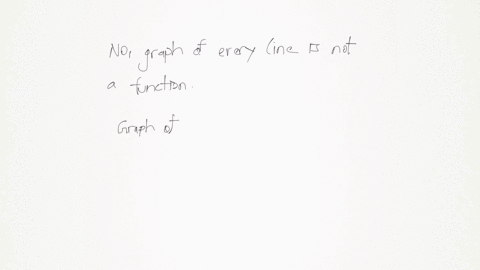 No, graph of every line is not
a function.
Graph of